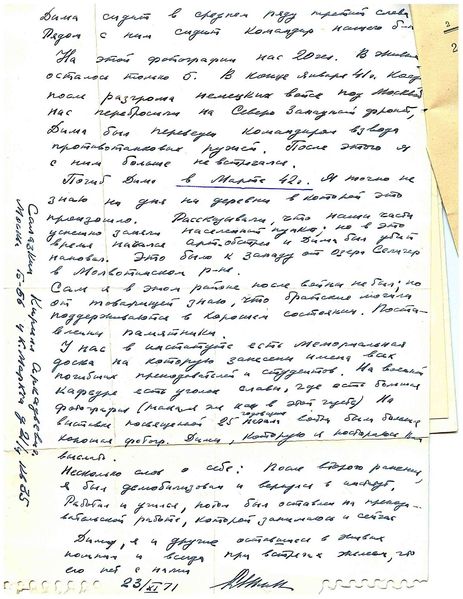 Дима сидит в среднем ряду третий слева
Рядом с ним сидит командир нашего
На этой фотографии нас 20 чел. В живых
осталось только 6. В конце января 41г. когда
после разгрома немецких войск под Москвой
нас перебросили на Северо Западный фронт,
Дима был переведен командиром взвода
противотанковых ружей. После этого я
с ним больше не встречался.
Погиб Дима в Марте 42г. Я точно не
знаю ни дня ни деревни в которой это
произошло. Рассказывали, что наши части
успешно заняли населенный пункт, но в это
время начался артобстрел и Дима был убит
наповал. Это было к западу от озера Селигер
в Молвотицком р-не.
Сам я в этом районе после войны не был, но
от товарищей знаю, что братские могилы
поддерживаются в хорошем состоянии. Поста-
влены памятники.
У нас в институте есть Мемориальная
доска на которую занесены имена всех
погибших преподавателей и студентов. На военной
кафедре есть уголок славы, где есть большая
фотография (такая же как в этой) На
выставке посвященной 25 годовщине был большая
хорошая фотогр. Димы, которую я постараюсь Вам
выслать.
Несколько слов о себе: После второго ранения,
я был демобилизован и вернулся в институт,
Работал и учился, потом был оставлен на препода-
вательской работе, которой занимаюсь и сейчас
Диму, я и другие оставшиеся в живых
помним и всегда при встречах жалеем, что
его нет с нами
23/XI 71
Кирилл Аркадьевич
Москва Г-66 ул К. Маркса д 21/4